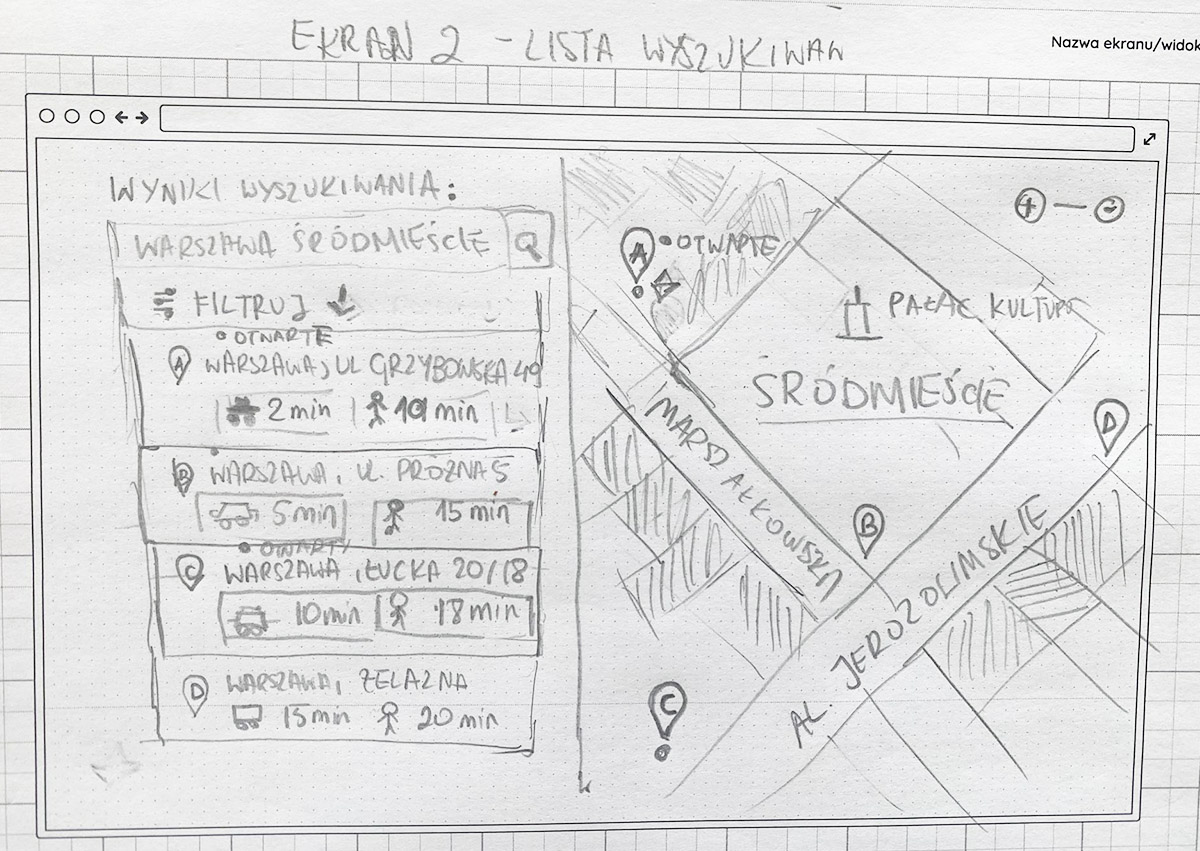 EKRAN 2 - LISTA WYSZUKIWAŃ
Nazwa ekranu/widok
WYNIKI WYSZUKIWANIA:
WARSZAWA ŚRÓDMIEŚCIE
FILTRUJ
• OTWARTE
A WARSZAWA, UL GRZYBOWSKA 49
2 min 10 min
B WARSZAWA, UL. PRÓŻNA 5
5 min 15 min
• OTWARTY
C WARSZAWA, ŁUCKA 20/18
10 min 18 min
D WARSZAWA, ŻELAZNA
15 min 20 min
+ — -
A • OTWARTE
PAŁAC KULTURY
ŚRÓDMIEŚCIE
MARSZAŁKOWSKA
D
B
AL. JEROZOLIMSKIE
C